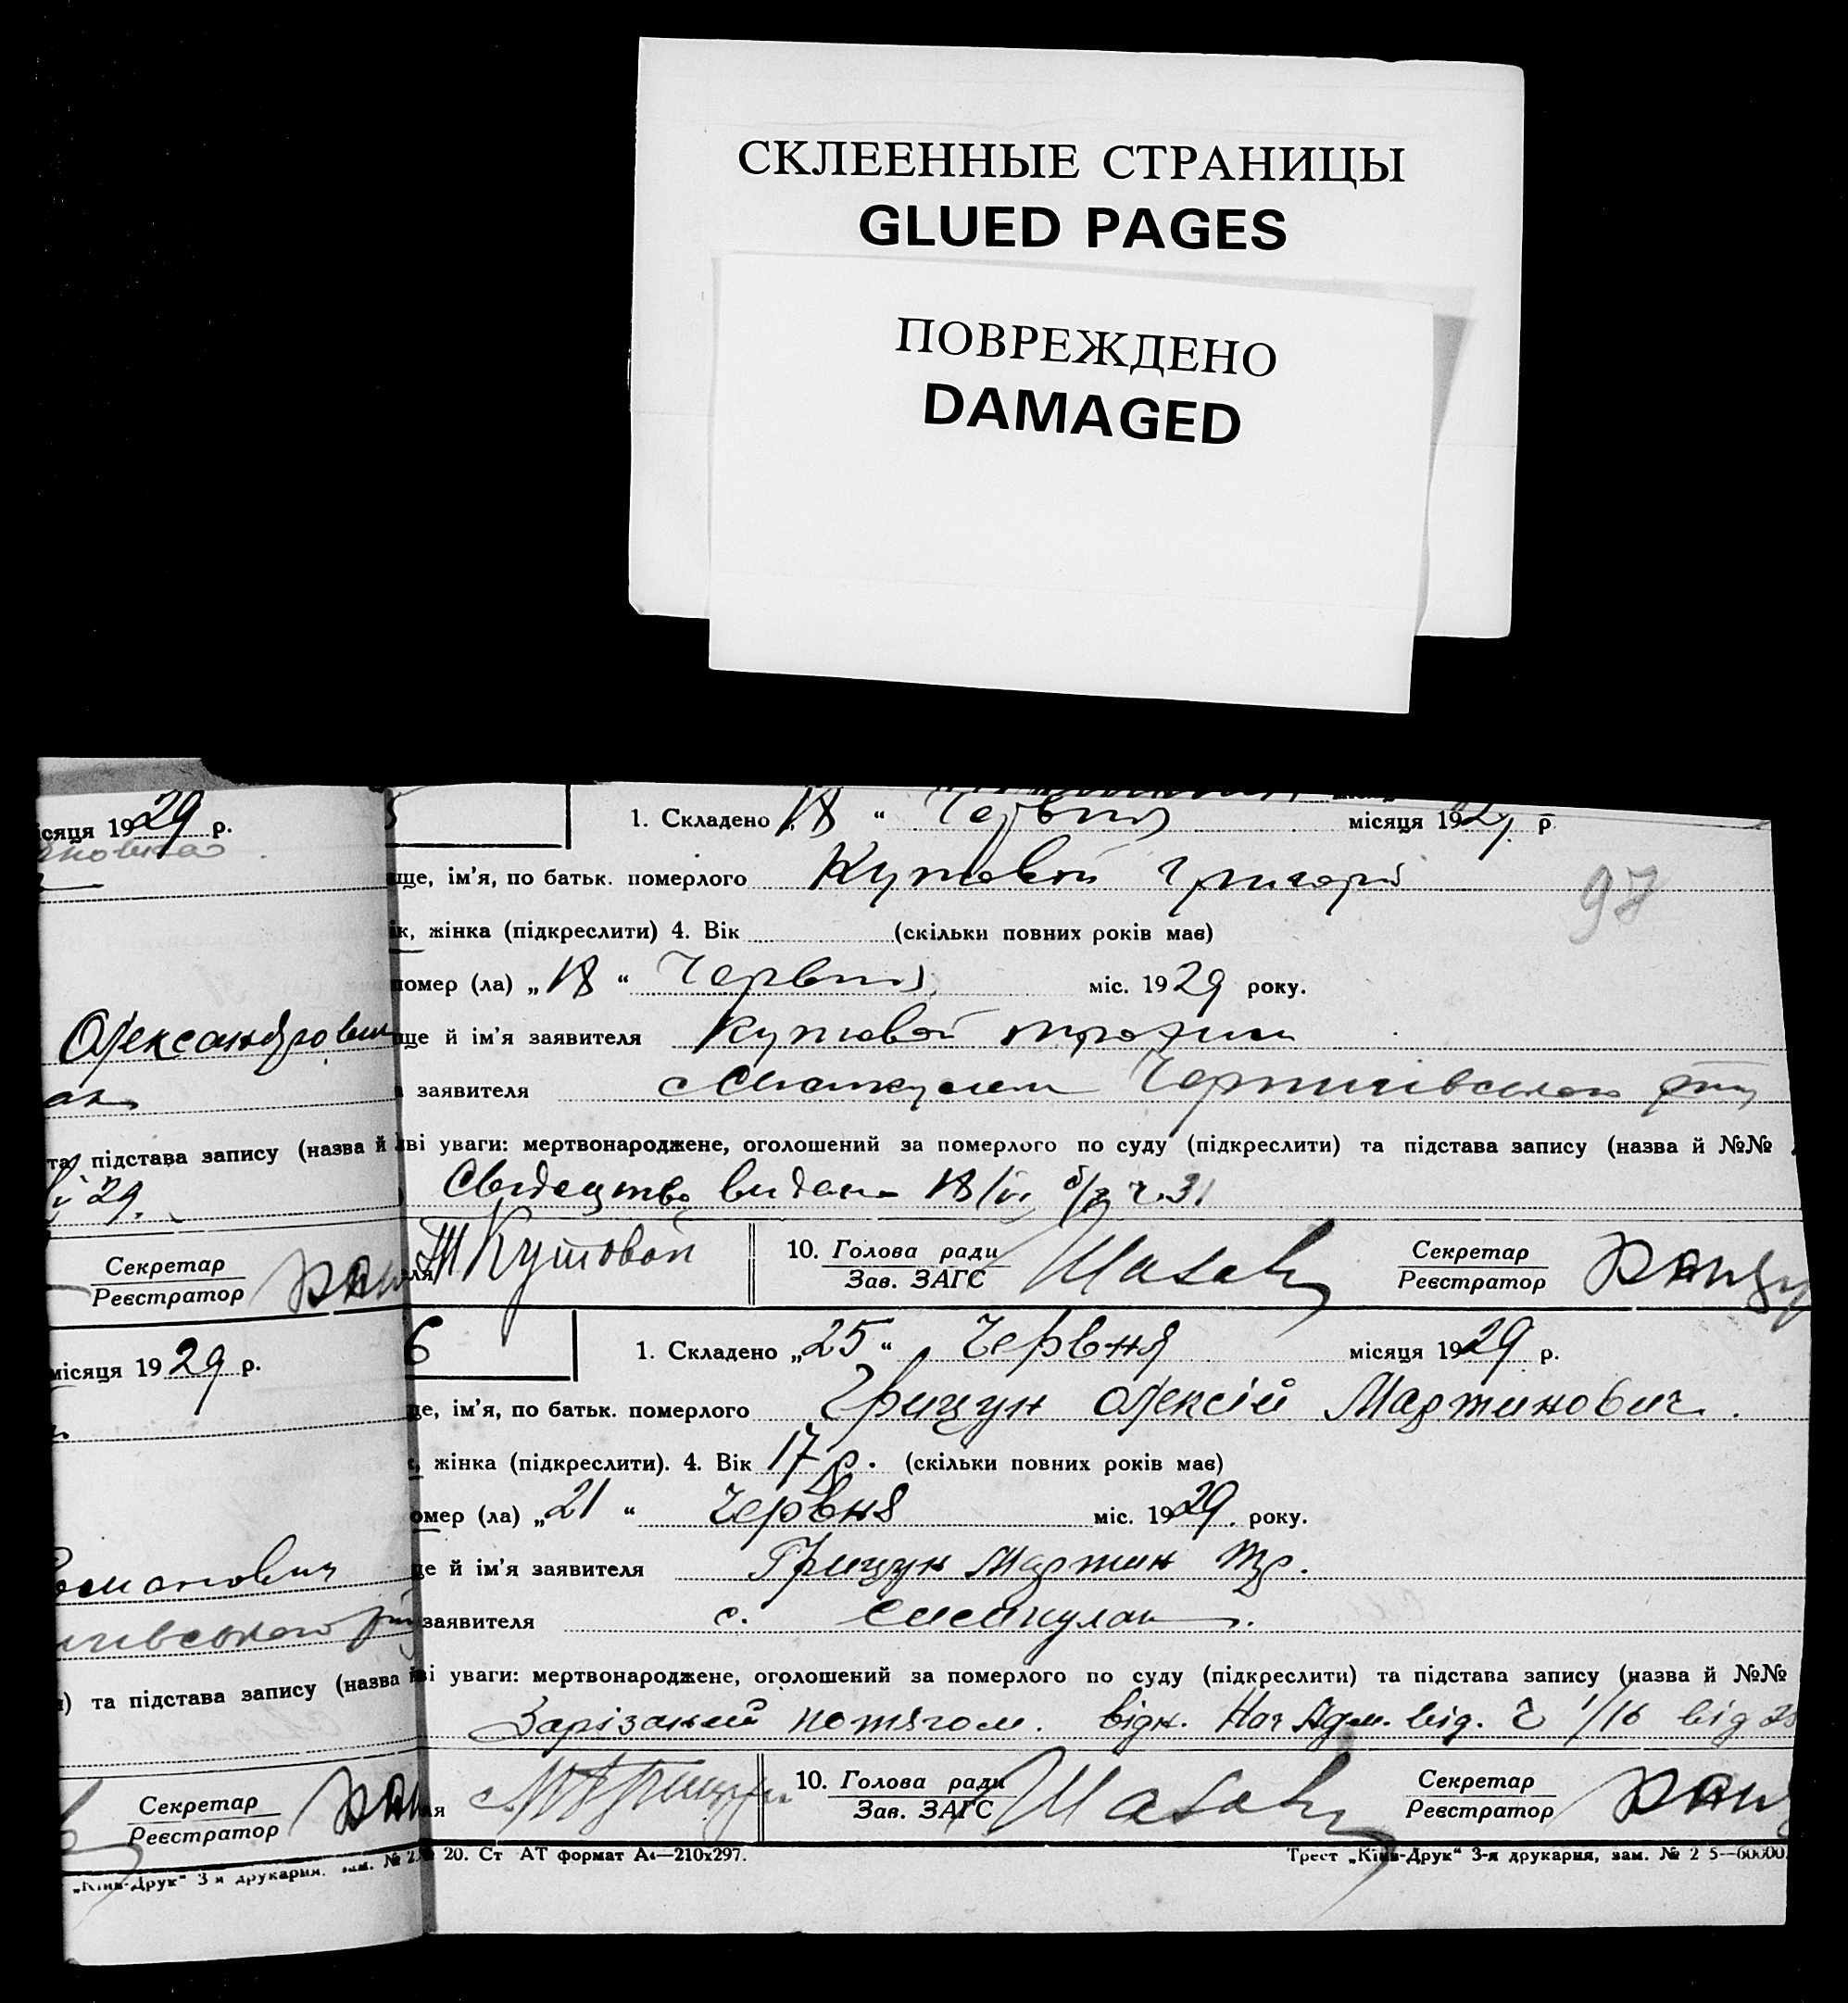 СКЛЕЕННЫЕ СТРАНИЦЫ
GLUED PAGES
ПОВРЕЖДЕНО
DAMAGED
ісяця 1929 р.
Олександрович
та підстава запису (назва й
29.
Секретар
Реєстратор
місяця 1929 р.
) та підстава запису (назва
Секретар
Реєстратор
„Київ-Друк“ 3 я друкарня. зам. № 2
5
1. Складено „18“ Червня місяця 1929 р.
ще, ім'я, по батьк. померлого Кутовой Григорій
97
ік, жінка (підкреслити) 4. Вік (скільки повних років має)
помер (ла) „18“ Червня міс. 1929 року.
ще й ім'я заявителя Кутовой
заявителя
ві уваги: мертвонароджене, оголошений за померлого по суду (підкреслити) та підстава запису (назва й №№
Свідецтво видано 18/VI ч. 31
ля Т Кутовой
10. Голова ради
Зав. ЗАГС
Секретар
Реєстратор
6
1. Складено „25“ Червня місяця 1929 р.
ще, ім'я, по батьк. померлого Грицун Олексій Мартинович.
жінка (підкреслити). 4. Вік 17 р. (скільки повних років має)
омер (ла) „21“ Червня міс. 1929. року.
ще й ім'я заявителя Грицун Мартин
заявителя с.
ві уваги: мертвонароджене, оголошений за померлого по суду (підкреслити) та підстава запису (назва й №№
Зарізаний потягом. відн. Нач Адм. від. Ч 1/16 від
ля
10. Голова ради
Зав. ЗАГС
Секретар
Реєстратор
20. Ст АТ формат А4—210х297.
Трест „Київ-Друк“ 3-я друкарня, зам. № 2 5—60000.